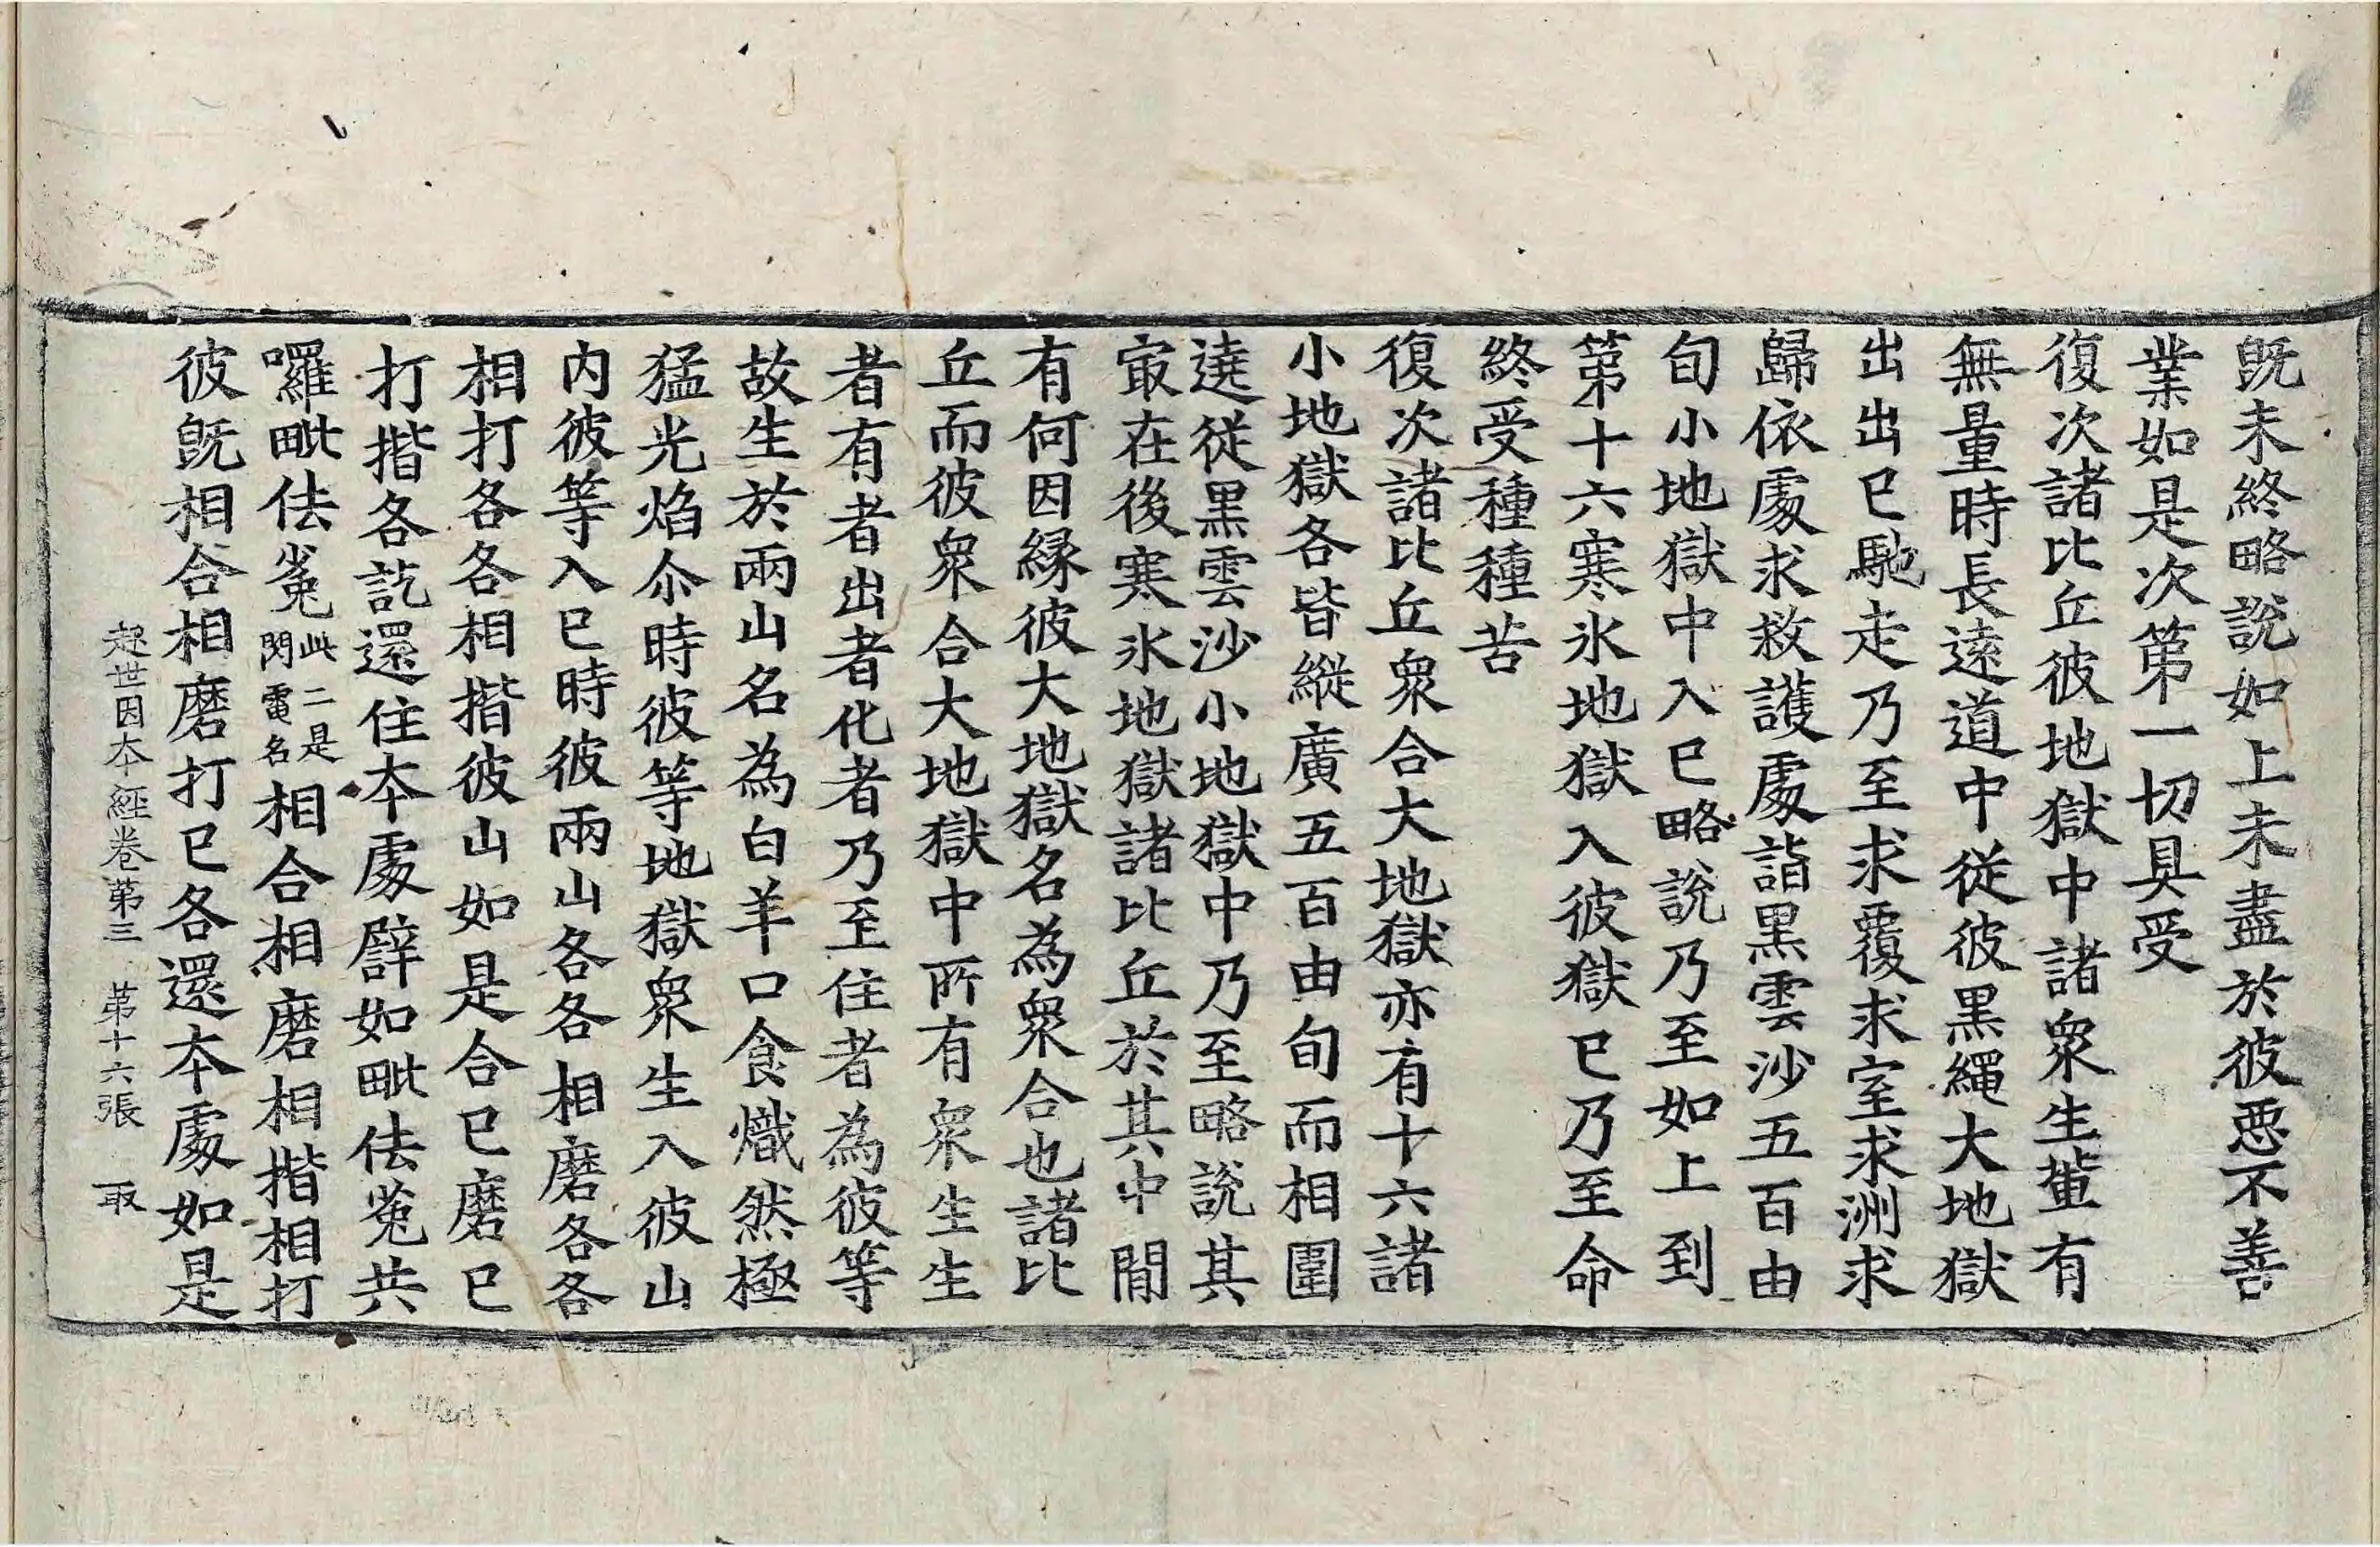 既未終略說如上未盡於彼惡不善
業如是次第一切具受
復次諸比丘彼地獄中諸衆生軰有
無量時長遠道中從彼黑繩大地獄
出出已馳走乃至求覆求室求洲求
歸依處求救護處詣黑雲沙五百由
旬小地獄中入已略說乃至如上到
第十六寒氷地獄入彼獄已乃至命
終受種種苦
復次諸比丘衆合大地獄亦有十六諸
小地獄各皆縱廣五百由旬而相圍
遶從黑雲沙小地獄中乃至略說其
冣在後寒氷地獄諸比丘於其中閒
有何因緣彼大地獄名為衆合也諸比
丘而彼衆合大地獄中所有衆生生
者有者出者化者乃至住者為彼等
故生於兩山名為白羊口食熾然極
猛光焰尒時彼等地獄衆生入彼山
內彼等入已時彼兩山各各相磨各各
相打各各相揩彼山如是合已磨已
打揩各訖還住本處譬如毗佉㝹共
囉毗佉㝹此二是閃電名相合相磨相揩相打
彼既相合相磨打已各還本處如是
起世因本經卷第三 第十六張 取